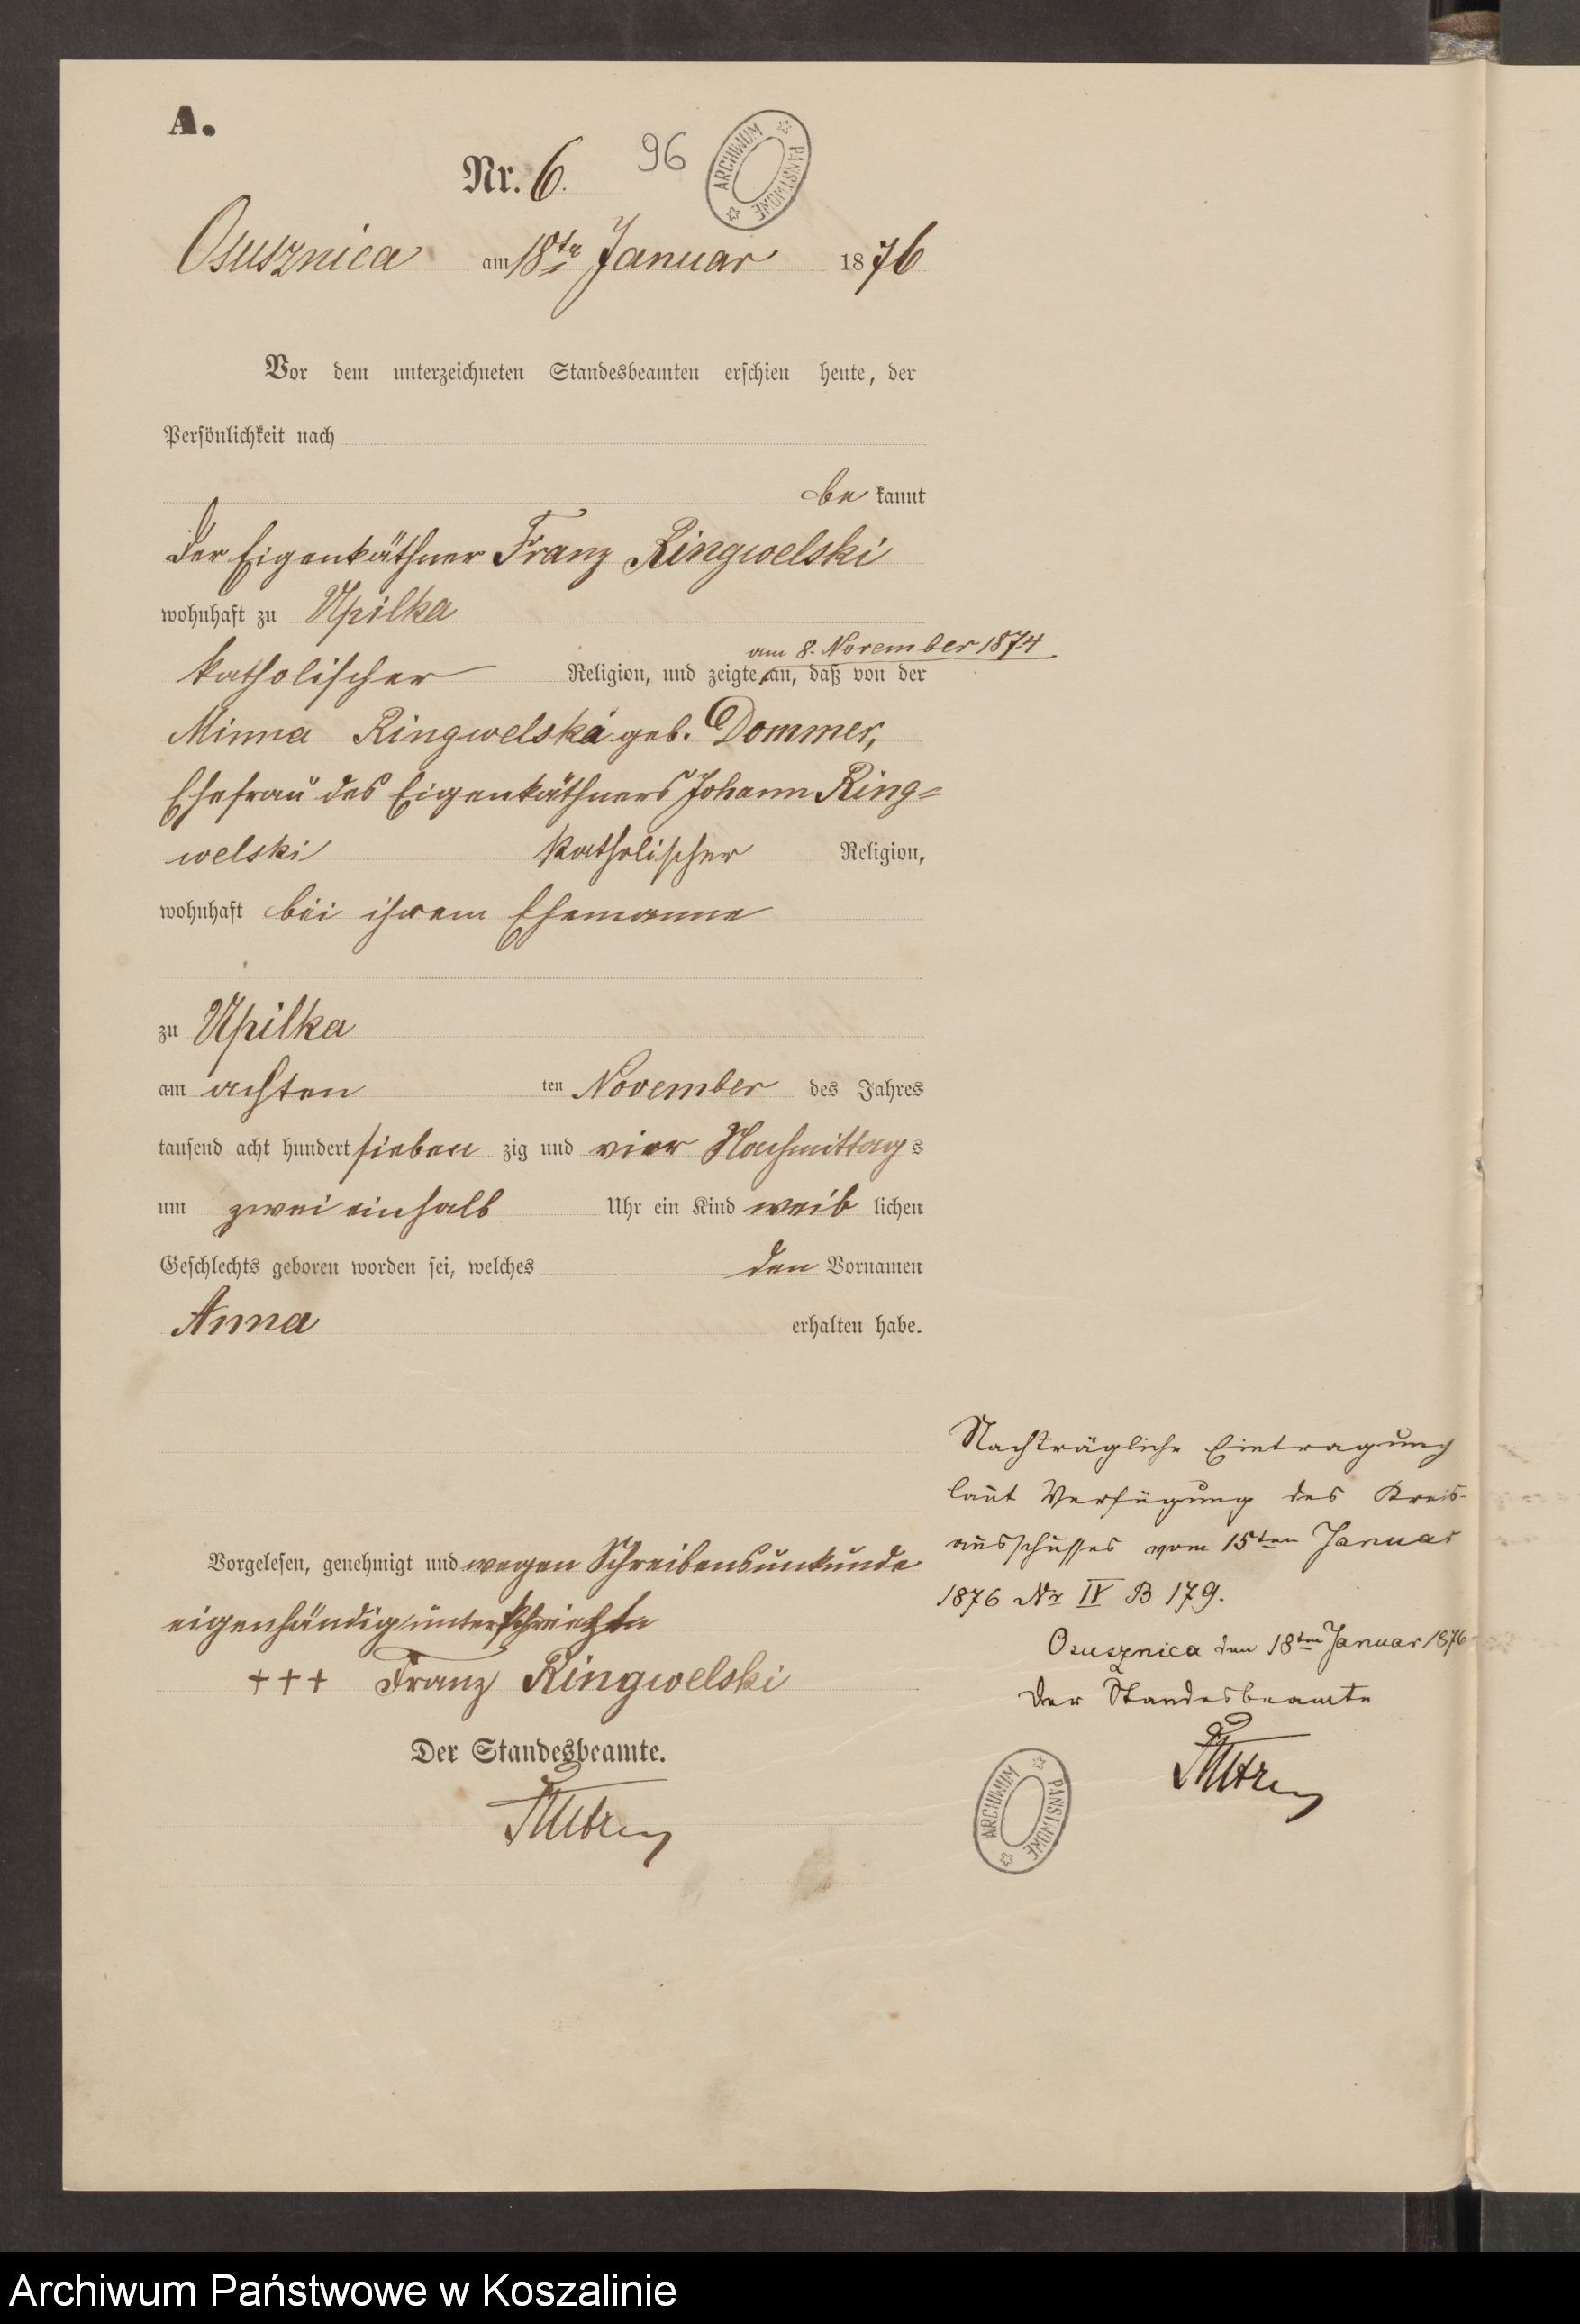 A.
Nr. 6.
96
ARCHIWUM PANSTWOWE
Osusznica am 18ten Januar 1876
Vor dem unterzeichneten Standesbeamten erschien heute, der
Persönlichkeit nach
be kannt
der Eigenkäthner Franz Ringwelski
wohnhaft zu Upilka
am 8. November 1874
katholischer Religion, und zeigte an, daß von der
Minna Ringwelska geb. Dommer,
Ehefrau des Eigenkäthners Johann Ring=
welski katholischer Religion,
wohnhaft bei ihrem Ehemanne
zu Upilka
am achten ten November des Jahres
tausend acht hundert sieben zig und vier Nachmittags
um zwei einhalb Uhr ein Kind weib lichen
Geschlechts geboren worden sei, welches den Vornamen
Anna erhalten habe.
Vorgelesen, genehmigt und wegen Schreibensunkunde
eigenhändig
+++ Franz Ringwelski
Der Standesbeamte.
Nachträgliche Eintragung
laut Verfügung des Kreis-
ausschusses vom 15ten Januar
1876 Nr IV B 179.
Osusznica den 18ten Januar 1876
Der Standesbeamte
ARCHIWUM PANSTWOWE
Archiwum Państwowe w Koszalinie